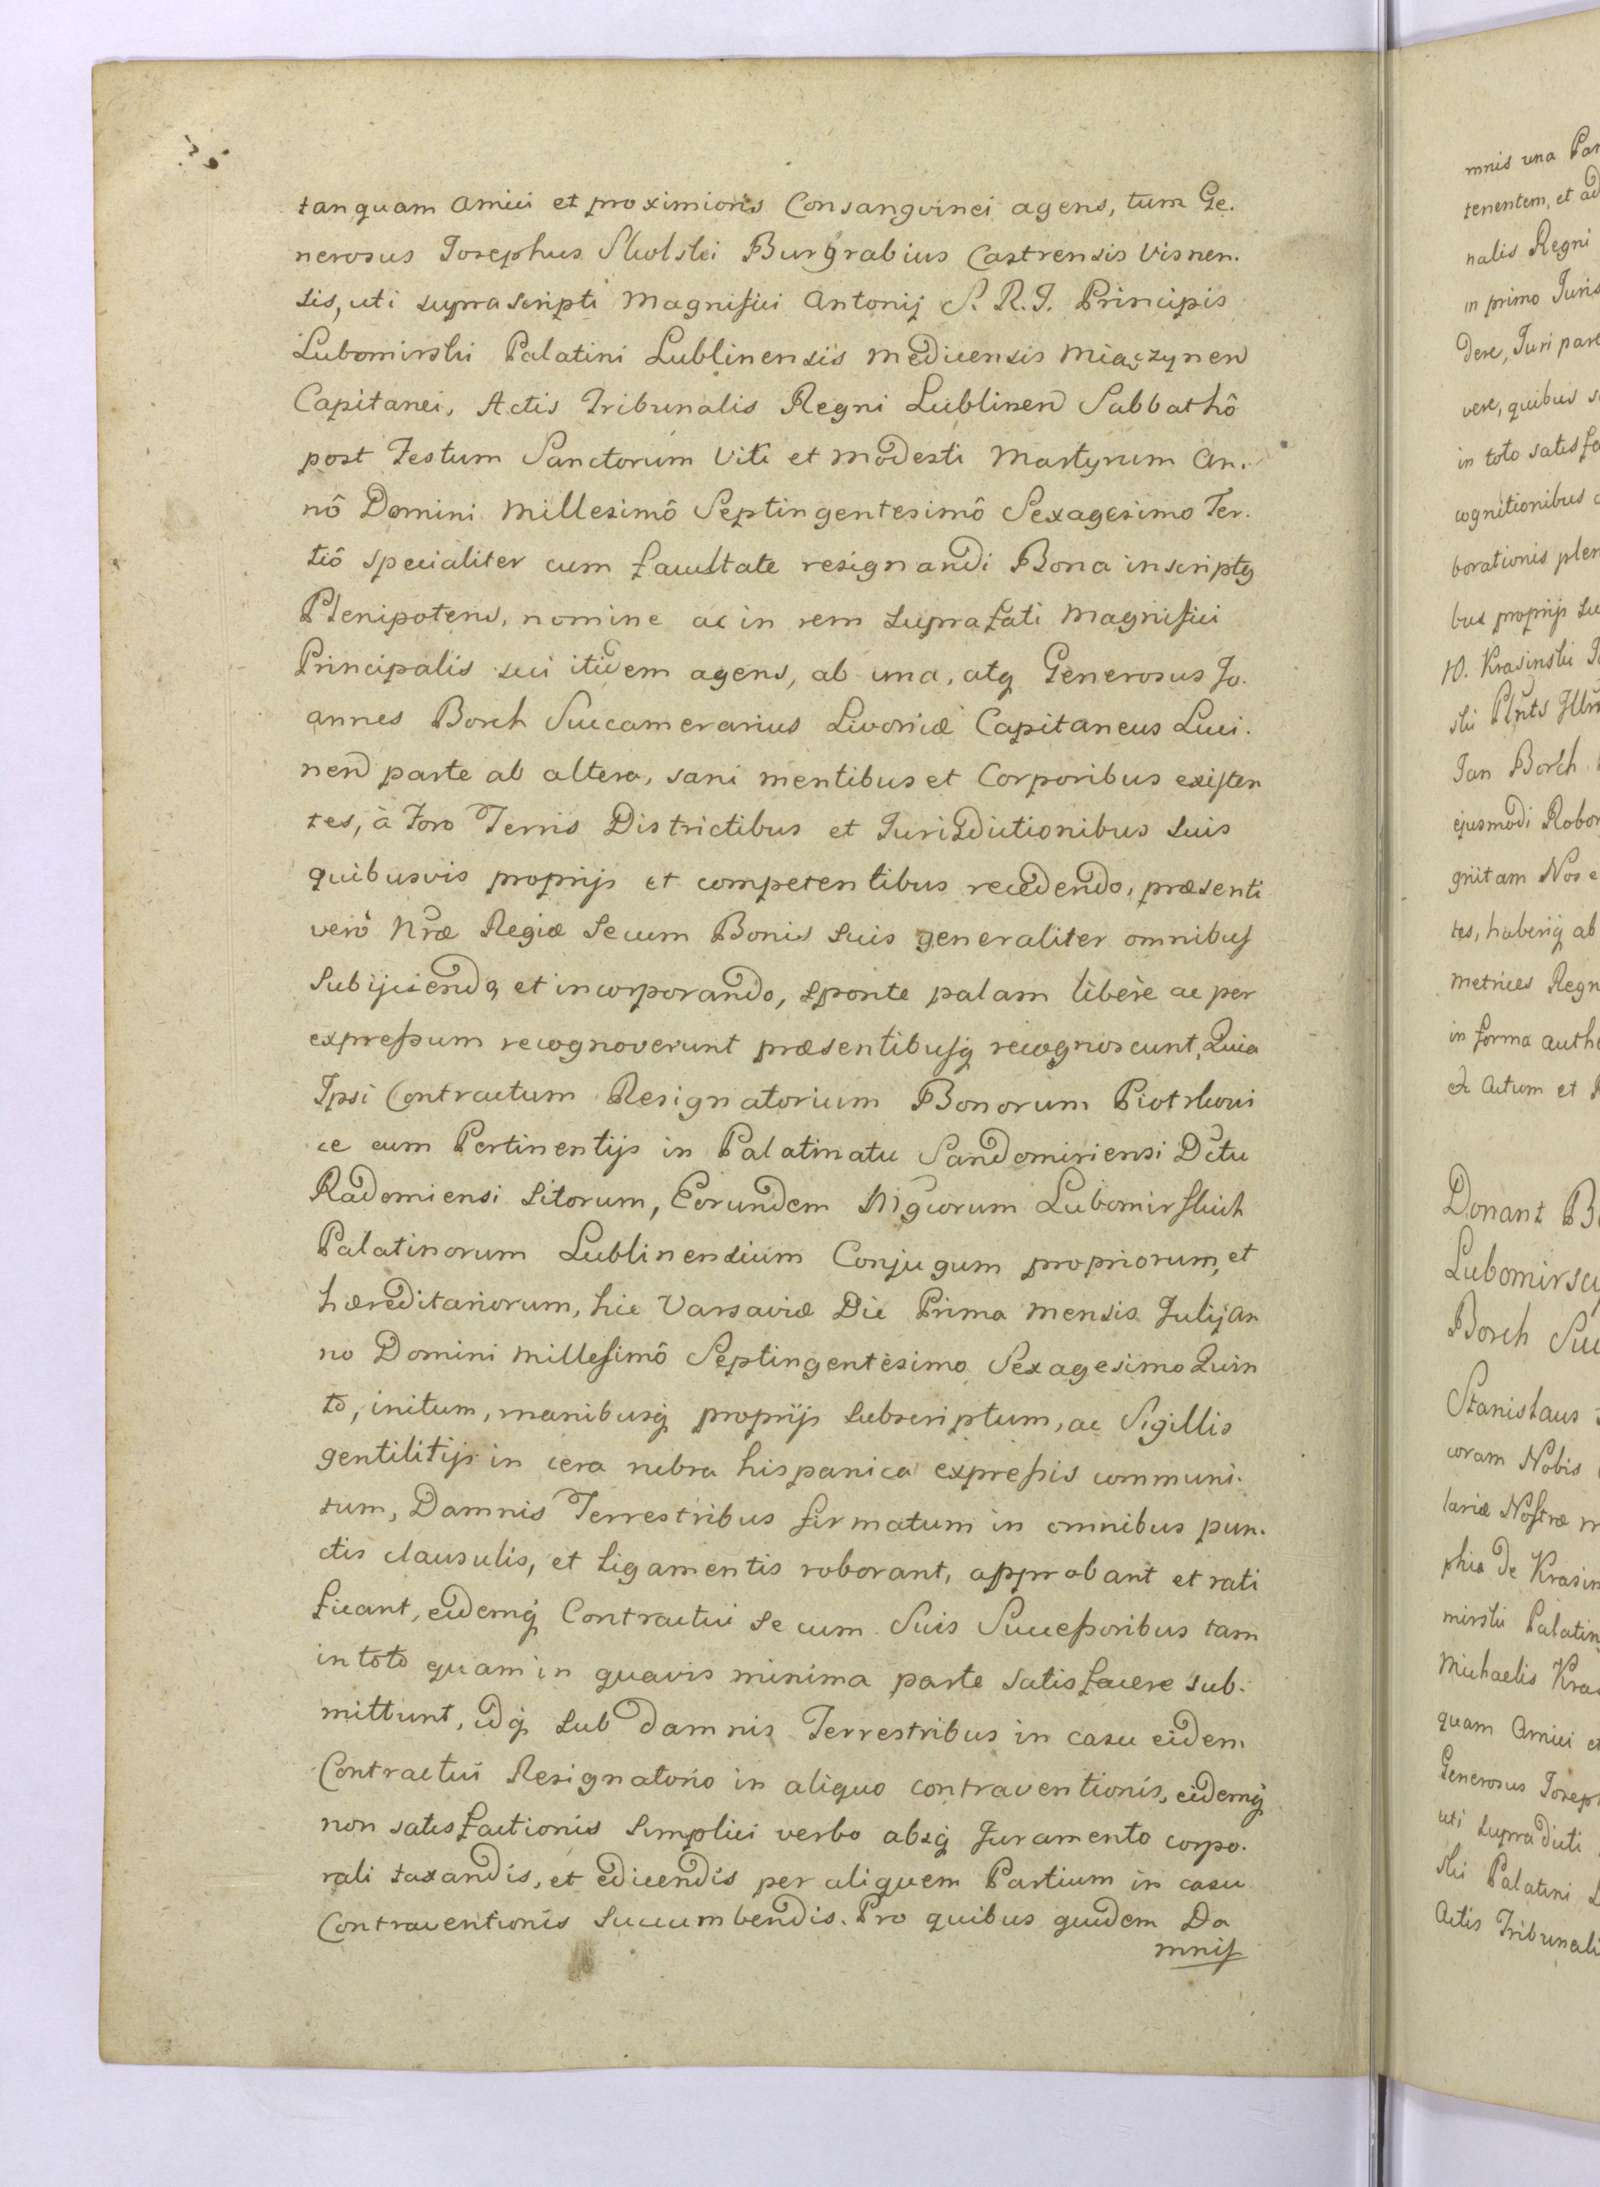 tanquam amici et proximioris Consangvinei agens, tum Ge.
nerosus Josephus Skolski Burgrabius Castrensis Visnen.
sis, uti suprascripti Magnifici Antonij S. R. I. Principis
Lubomirski Palatini Lublinensis Medicensis Miączynen
Capitanei, Actis Tribunalis Regni Lublinen Sabbathô
post Festum Sanctorum Viti et Modesti Martyrum An.
nô Domini Millesimô Septingentesimô Sexagesimo Ter.
tiô specialiter cum facultate resignandi Bona inscriptq
Plenipotens, nomine ac in rem suprafati Magnifici
Principalis sui itidem agens, ab una, atq Generosus Jo.
annes Borch Succamerarius Livoniæ Capitaneus Luci.
nen parte ab altera, sani mentibus et Corporibus existen
tes, à Foro Terris Districtibus et Jurisdictionibus suis
quibusvis proprijs et competentibus recedendo, præsenti
verò Nræ Regiæ se cum Bonis suis generaliter omnibus
subijciendo, et incorporando, sponte palam liberè ac per
expressum recognoverunt præsentibusq recognoscunt, Quia
Ipsi Contractum Resignatorium Bonorum Piotrkowi
ce cum Pertinentijs in Palatinatu Sandomiriensi Dctu
Radomiensi sitorum, Eorundem Mgcorum Lubomirskich
Palatinorum Lublinensium Conjugum propriorum, et
hæreditariorum, hic Varsaviæ Die Prima Mensis Julij An
no Domini Millesimô Septingentèsimo Sexagesimo Quin
to, initum, manibusq proprijs subscriptum, ac Sigillis
gentilitijs in cera rubra hispanica expressis communi.
tum, Damnis Terrestribus firmatum in omnibus pun.
ctis clausulis, et ligamentis roborant, approbant et rati
ficant, eidemq Contractui se cum Suis Successoribus tam
in toto quam in quavis minima parte satisfacere sub.
mittunt, idq sub damnis Terrestribus in casu eidem
Contractui Resignatorio in aliquo contraventionis, eidemq
non satisfactionis simplici verbo absq Juramento corpo.
rali taxandis, et edicendis per aliquem Partium in casu
Contraventionis succumbendis. Pro quibus quidem Da
mnis
mnis una Par
tenentem, et ad
nalis Regni
in primo Juris
dere, Juri pare
vere, quibus s
in toto satisfa
cognitionibus
borationis plen
bus proprijs su
Krasinski
Jan Borch
ejusmodi Robor
gnitam Nos e
tes, haberiq ab
Metrices Regn
in forma authe
Actum et
Donant B
Lubomirscy
Borch Suc
Stanislaus
coram Nobis
lariæ Nostræ m
phia de Krasin
mirski Palatin
Michaelis Kra
quam Amici et
Generosus Joseph
uti supradicti
ski Palatini L
Actis Tribunali